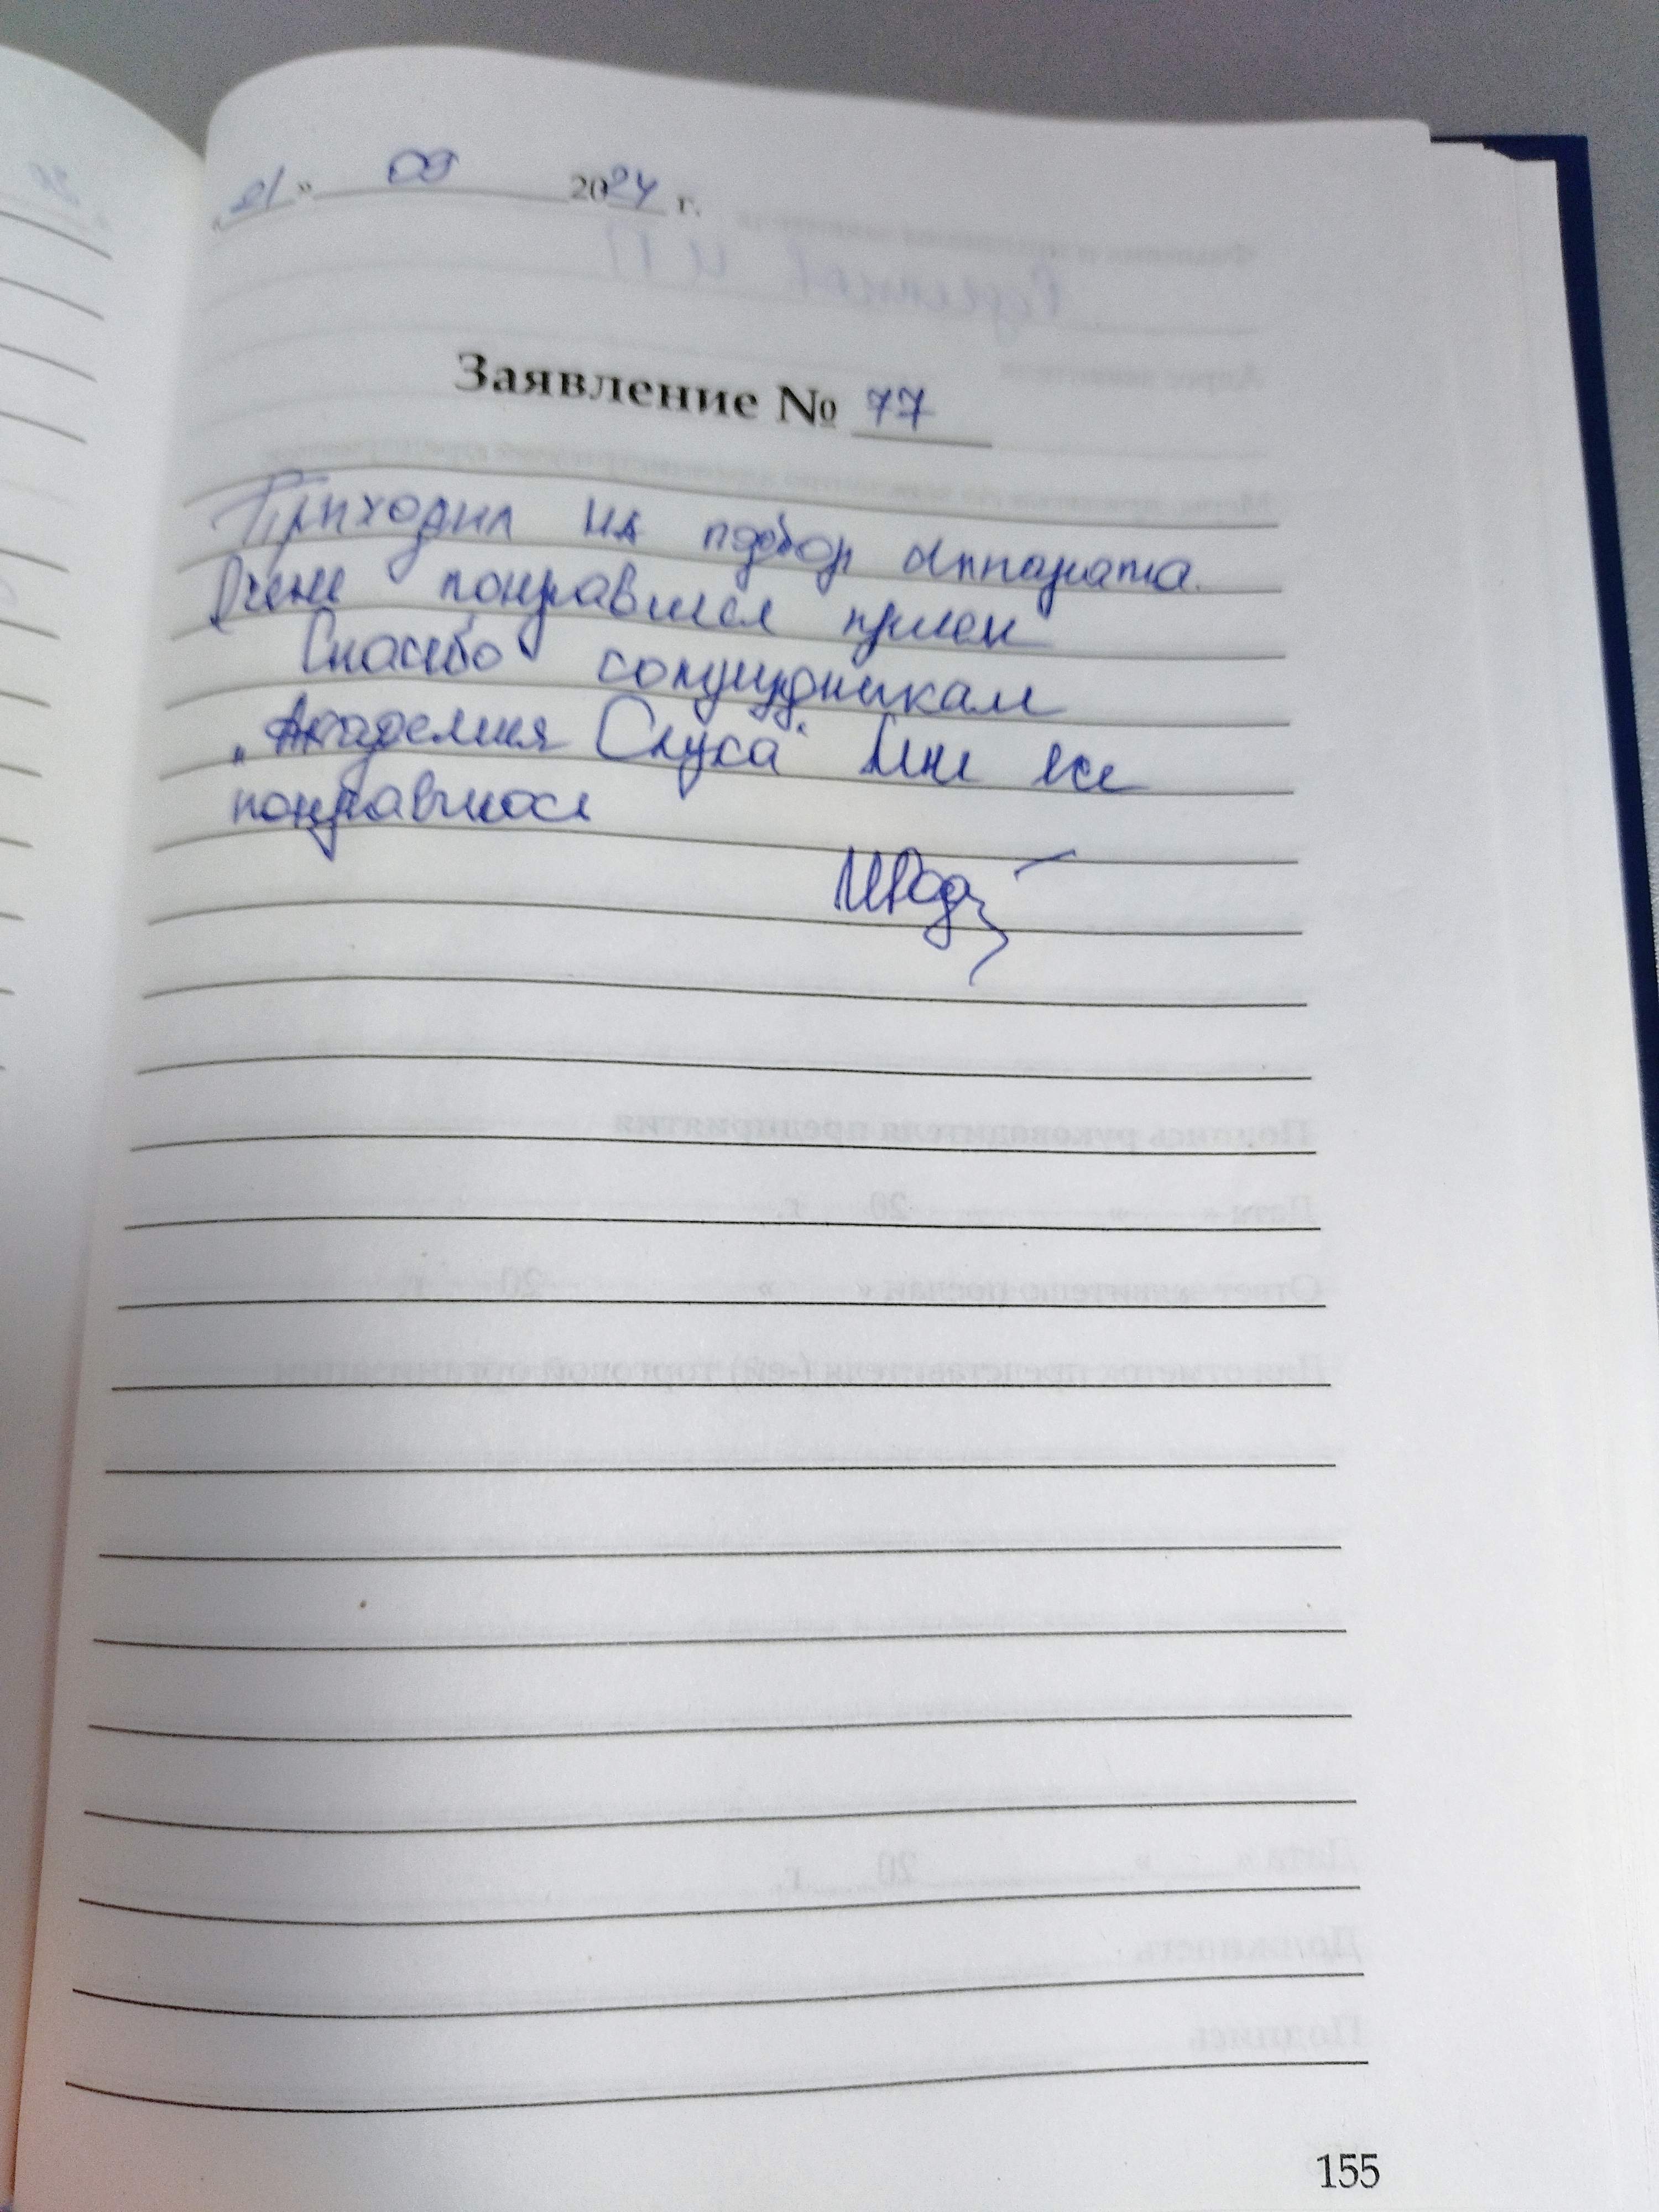 «21» 09 2024 г.
Заявление № 77
Приходил на подбор аппарата.
Очень понравился прием
Спасибо сотрудникам
„Академия Слуха" Мне все
понравилось
155